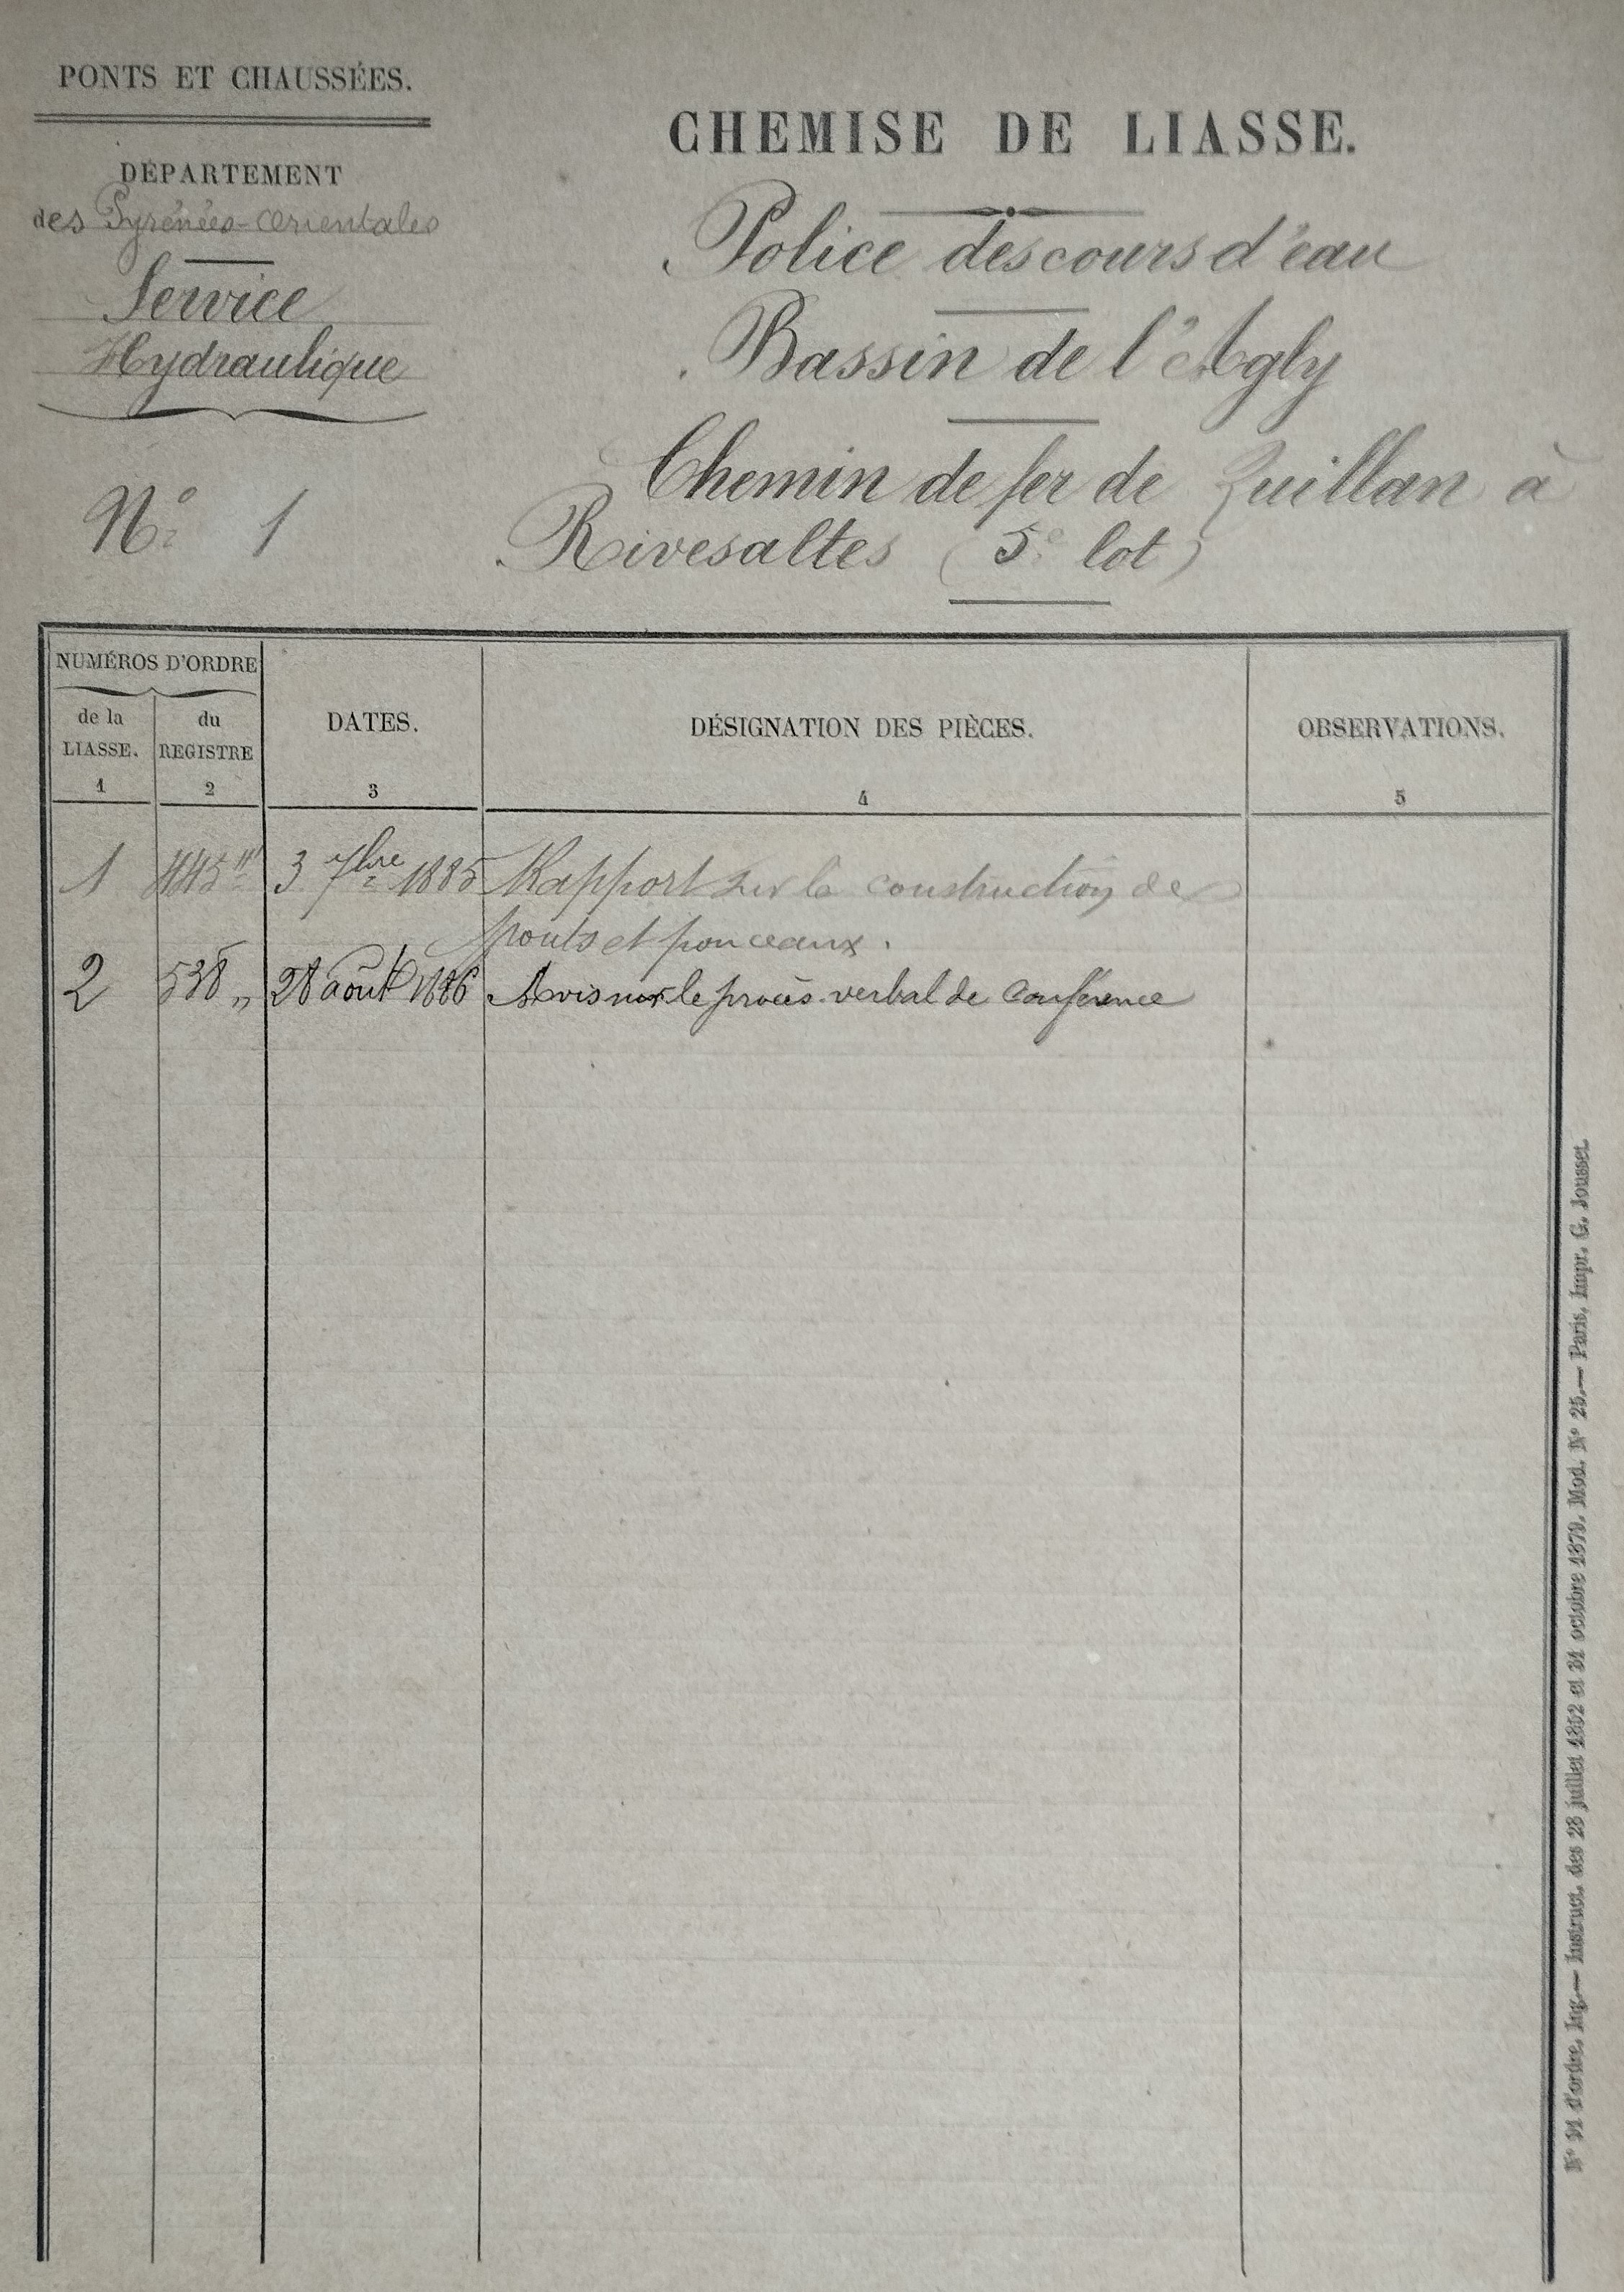 PONTS ET CHAUSSÉES.
DÉPARTEMENT
des Pyrénées-Orientales
Service
Hydraulique
N° 1
CHEMISE DE LIASSE.
Police des cours d'eau
Bassin de l'Agly
Chemin de fer de Quillan à
Rivesaltes (5e lot)
NUMÉROS D'ORDRE
de la LIASSE. 1
du REGISTRE 2
DATES. 3
DÉSIGNATION DES PIÈCES. 4
OBSERVATIONS. 5
1 3 7bre 1885 Rapport sur la construction de
ponts et ponceaux.
2 538 " 28 août 1886 Avis sur le procès-verbal de Conférence
N° 91 d'ordre, Ing.— Instruct. des 28 juillet 1852 et 31 octobre 1879. Mod. N° 25.— Paris, Impr. G. Jousset.